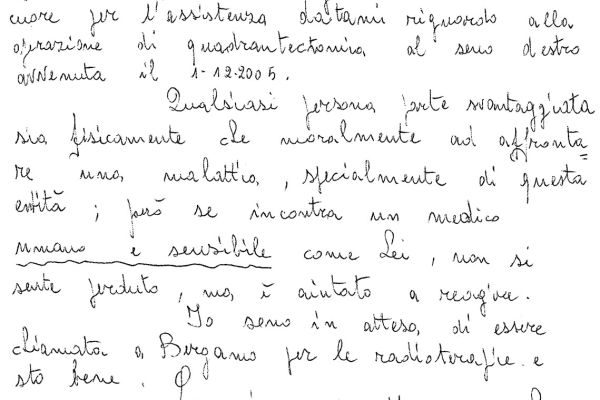 cuore per l'assistenza datami riguardo alla
operazione di quadrantectomia al seno destro
avvenuta il 1-12-2005.
Qualsiasi persona parte svantaggiata
sia fisicamente che moralmente ad affronta=
re una malattia, specialmente di questa
entità; però se incontra un medico
umano e sensibile come Lei, non si
sente perduto, ma è aiutato a reagire.
Io sono in attesa di essere
chiamata a Bergamo per le radioterapie e
sto bene.